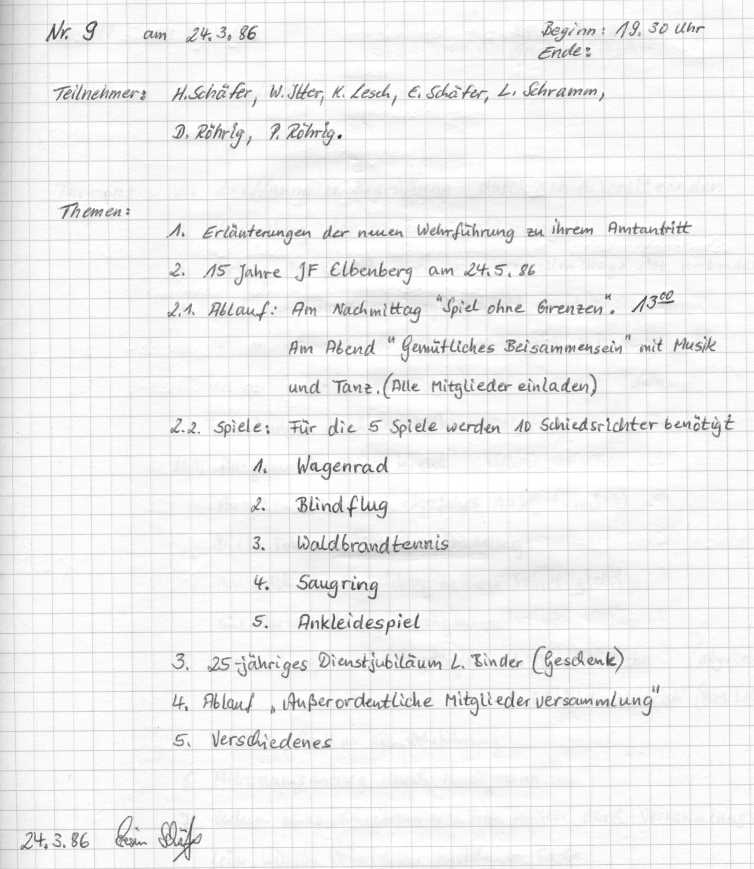 Nr. 9 am 24.3.86 Beginn: 19.30 Uhr
Ende:
Teilnehmer: H.Schäfer, W. Itter, K. Lesch, E. Schäfer, L. Schramm,
D. Röhrig, P. Röhrig.
Themen:
1. Erläuterungen der neuen Wehrführung zu ihrem Amtantritt
2. 15 Jahre JF Elbenberg am 24.5.86
2.1. Ablauf: Am Nachmittag "Spiel ohne Grenzen". 13⁰⁰
Am Abend "Gemütliches Beisammensein" mit Musik
und Tanz. (Alle Mitglieder einladen)
2.2. Spiele: Für die 5 Spiele werden 10 Schiedsrichter benötigt
1. Wagenrad
2. Blindflug
3. Waldbrandtennis
4. Saugring
5. Ankleidespiel
3. 25-jähriges Dienstjubiläum L. Binder (Geschenk)
4. Ablauf „Außerordentliche Mitgliederversammlung"
5. Verschiedenes
24.3.86